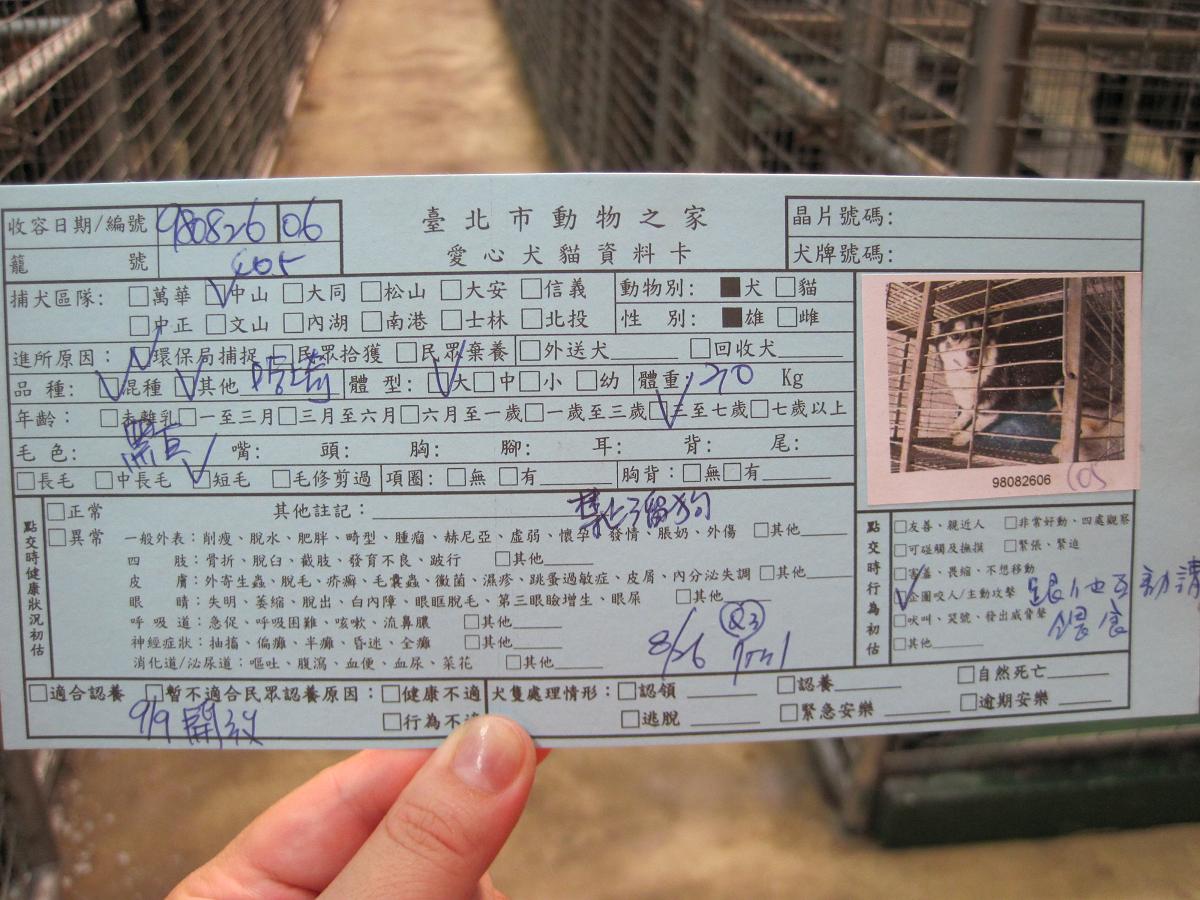 臺北市動物之家
愛心犬貓資料卡
收容日期/編號 980826 06
籠 號 c05
晶片號碼:
犬牌號碼:
捕犬區隊: □萬華 ☑中山 □大同 □松山 □大安 □信義
□中正 □文山 □內湖 □南港 □士林 □北投
動物別: ■犬 □貓
性 別: ■雄 □雌
進所原因: ☑環保局捕捉 □民眾拾獲 □民眾棄養 □外送犬 □回收犬
品 種: ☑混種 ☑其他 哈士奇 體 型: ☑大 □中 □小 □幼 體重: 20 Kg
年齡: □未離乳 □一至三月 □三月至六月 □六月至一歲 □一歲至三歲 ☑三至七歲 □七歲以上
毛 色: 黑白 嘴: 頭: 胸: 腳: 耳: 背: 尾:
□長毛 □中長毛 ☑短毛 □毛修剪過 項圈: □無 □有 胸背: □無 □有
98082606
c05
點交時健康狀況初估
□正常 其他註記: 禁止溜狗
□異常 一般外表:削瘦、脫水、肥胖、畸型、腫瘤、赫尼亞、虛弱、懷孕、發情、脹奶、外傷 □其他
四 肢:骨折、脫臼、截肢、發育不良、跛行 □其他
皮 膚:外寄生蟲、脫毛、疥癬、毛囊蟲、黴菌、濕疹、跳蚤過敏症、皮屑、內分泌失調 □其他
眼 睛:失明、萎縮、脫出、白內障、眼眶脫毛、第三眼瞼增生、眼屎 □其他
呼 吸 道:急促、呼吸困難、咳嗽、流鼻膿 □其他
神經症狀:抽搐、偏癱、半癱、昏迷、全癱 □其他
消化道/泌尿道:嘔吐、腹瀉、血便、血尿、菜花 □其他
8/26
點交時行為初估
□友善、親近人 □非常好動、四處觀察
□可碰觸及撫摸 □緊張、緊迫
□害羞、畏縮、不想移動
☑企圖咬人/主動攻擊
□吠叫、哭號、發出威脅聲
□其他
□適合認養 □暫不適合民眾認養原因: □健康不適
□行為不適
9/9 開放
犬隻處理情形: □認領 □認養 □自然死亡
□逃脫 □緊急安樂 □逾期安樂